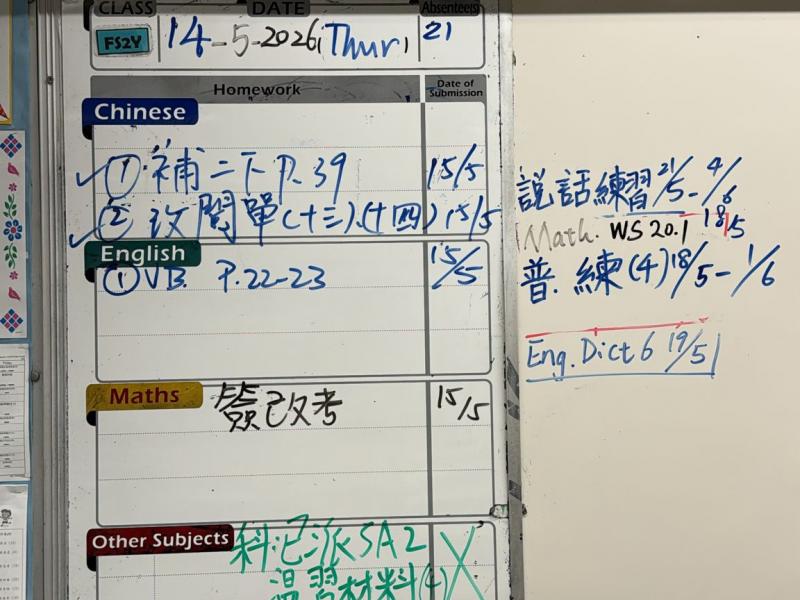 CLASS DATE Absentee(s)
FS2Y 14-5-2026 (Thur) 21
Homework Date of Submission
Chinese
① 補二下 P.39 15/5
② 改閱單(十三)、(十四) 15/5
English
① VB. P.22-23 15/5
Maths
簽改考 15/5
Other Subjects
科:已派SA2
溫習材料
説話練習 21/5-4/6
Math. WS 20.1 18/5
普.練(4) 18/5-1/6
Eng. Dict 6 19/5